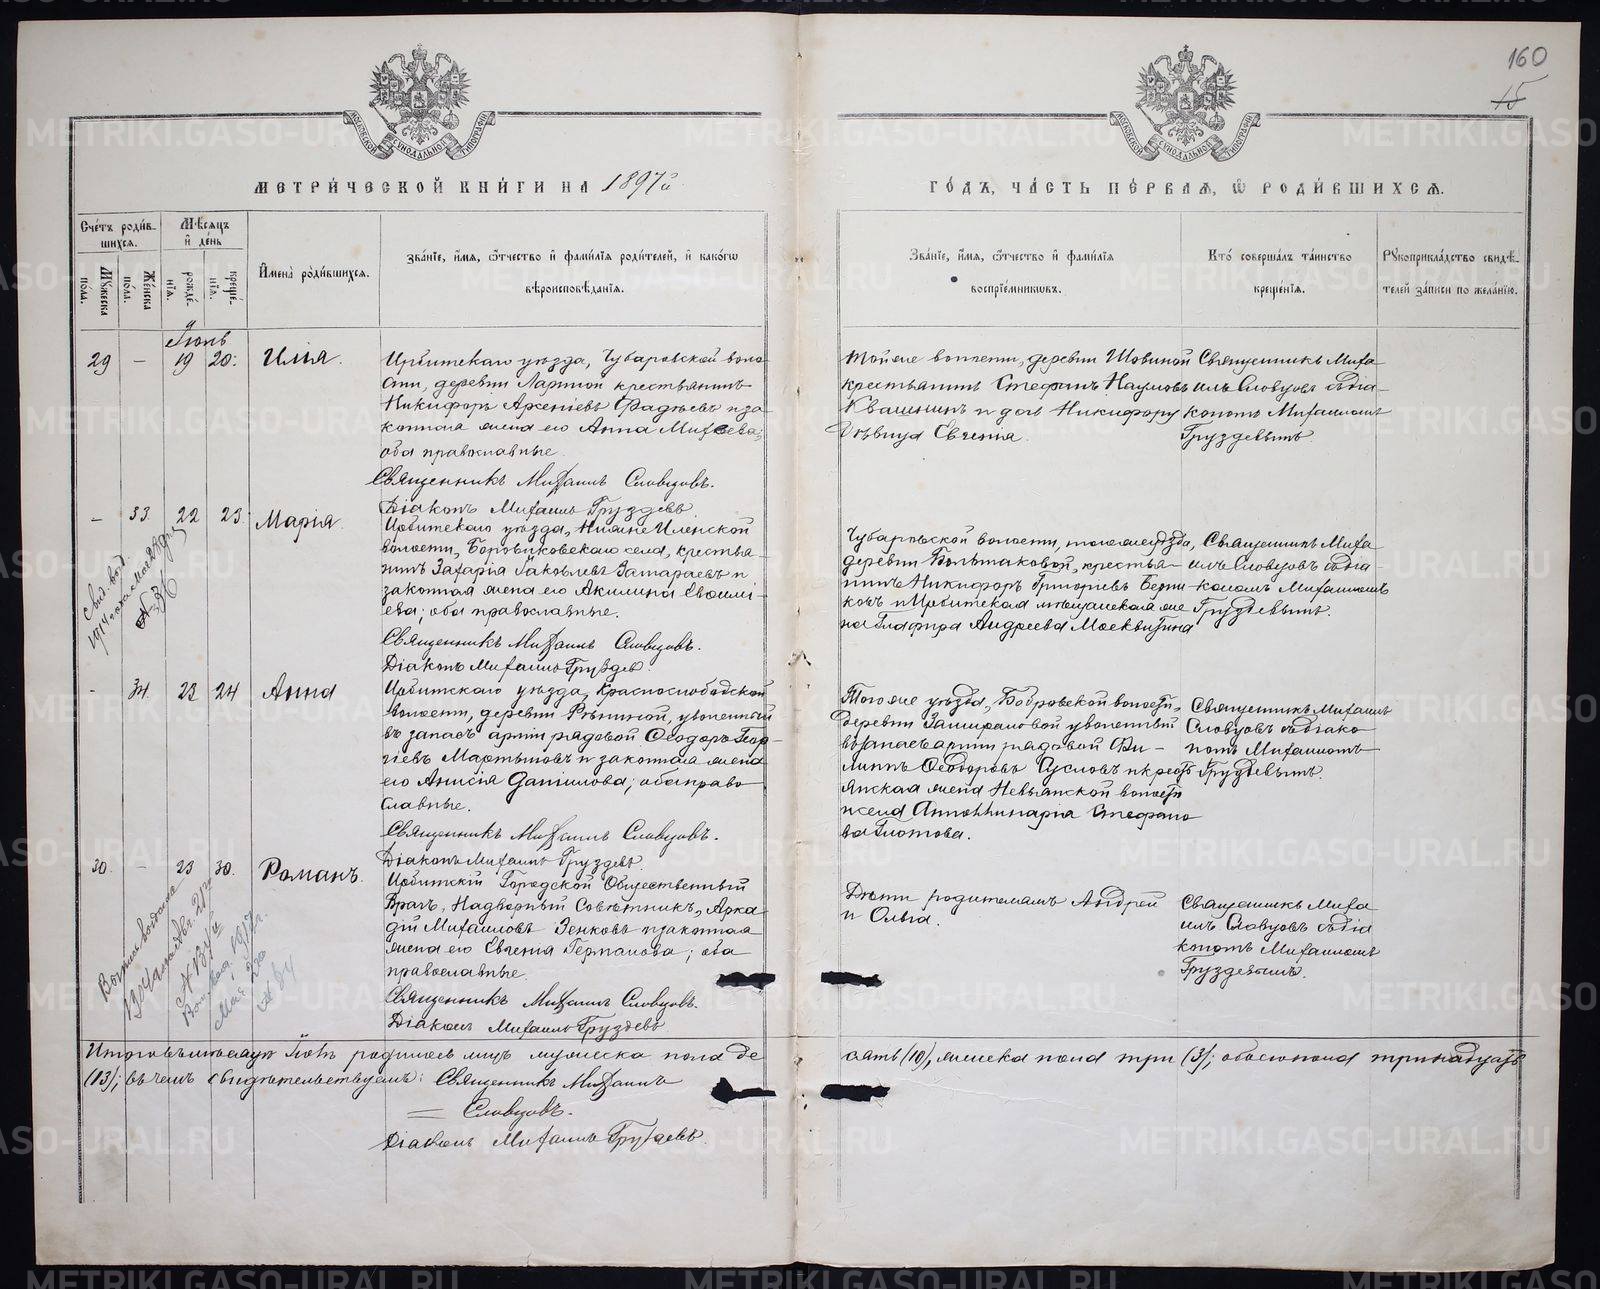 160
15
МЕТРИ́ЧЕСКОЙ КНИ́ГИ НА 1897й
ГО́ДЪ, ЧА́СТЬ ПЕ́РВАЯ, Ѡ РОДИ́ВШИХСЯ.
Сче́тъ роди́в-
шихся.
Му́жеска
по́ла.
Же́нска
по́ла.
Мѣ́сяцъ
и день
рожде́-
нїя.
креще́-
нїя.
Имена̀ роди́вшихся.
Зва́нїе, и́мя, ѻ́тчество и фами́лїя роди́телей, и како́гѡ
вѣроисповѣ́данїя.
Зва́нїе, и́мя, ѻ́тчество и фами́лїя
воспрїе́мникѡвъ.
Кто̀ соверша́лъ та́инство
креще́нїя.
Рꙋкоприкла́дство свидѣ́-
телей за́писи по жела́нїю.
Іюнь
29 — 19 20. Илія.
Ирбитскаго уѣзда, Чубаровской воло-
сти, деревни Лаптой крестьянинъ
Никифоръ Арсеніевъ Фадѣевъ и за-
конная жена его Анна Михеева;
оба православные
Священникъ Михаилъ Словцовъ.
Діаконъ Михаилъ Груздевъ
Тойже волости, деревни Шовиной
крестьянинъ Стефанъ Наумовъ
Квашнинъ и дочь Никифору
дѣвица Евгенія.
Священникъ Миха-
илъ Словцовъ съ діа-
кономъ Михаиломъ
Груздевымъ
— 33. 22 23. Марія.
Ирбитскаго уѣзда, Нижне Иленской
волости, Боровиковскаго села, крестья-
нинъ Захарія Іаковлевъ Затараевъ и
законная жена его Акилина Евоимі-
ева; оба православные.
Священникъ Михаилъ Словцовъ.
Діаконъ Михаилъ Груздевъ.
Чубаровской волости, тогоже уѣзда,
деревни Большаковой, крестья-
нинъ Никифоръ Григорьевъ Берни-
ковъ и Ирбитская мѣщанская же-
на Глафира Андреева Москвитина
Священникъ Миха-
илъ Словцовъ съ діа-
кономъ Михаиломъ
Груздевымъ.
- 34 23 24 Анна
Ирбитскаго уѣзда, Краснослободской
волости, деревни Рѣпиной, уволенный
въ запасъ арміи рядовой Ѳеодоръ Геор-
гіевъ Мартыновъ и законная жена
его Анисія Даніилова; оба право-
славные.
Священникъ Михаилъ Словцовъ.
Діаконъ Михаилъ Груздевъ
Тогоже уѣзда, Бобровской волости,
деревни Замираловой уволенный
въ запасъ арміи рядовой Фи-
липпъ Ѳеодоровъ Сусловъ и кресть-
янская жена Невьянской волости
села Апполлинарія Стефано-
ва Глотова.
Священникъ Михаилъ
Словцовъ съ діако-
номъ Михаиломъ
Груздевымъ.
30. — 23 30. Романъ.
Ирбитскій Городской Общественный
Врачъ, Надворный Совѣтникъ, Арка-
дій Михаиловъ Зенковъ и законная
жена его Евгенія Германова; оба
православные.
Священникъ Михаилъ Словцовъ.
Діаконъ Михаилъ Груздевъ
Дѣти родителямъ Андрей
и Ольга.
Священникъ Миха-
илъ Словцовъ съ діа-
кономъ Михаиломъ
Груздевымъ.
Итого въ мѣсяцѣ Іюнѣ родилось лицъ мужеска пола де-
сять (10), женска пола три (3); обоего пола тринадцать
(13); въ чемъ свидѣтельствуемъ: Священникъ Михаилъ
Словцовъ.
Діаконъ Михаилъ Груздевъ.